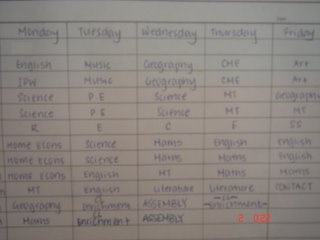 Monday Tuesday Wednesday Thursday Friday
English Music Geography CME Art
IPW Music Geography CME Art
Science P.E Science MT Geography
Science P.E Science MT MT
R E C E SS
Home Econs Science Maths English English
Home Econs Science Maths Maths English
Home Econs English MT Maths Maths
MT English Literature Literature CONTACT
Geography Enrichment ASSEMBLY Enrichment
Maths Enrichment ASSEMBLY